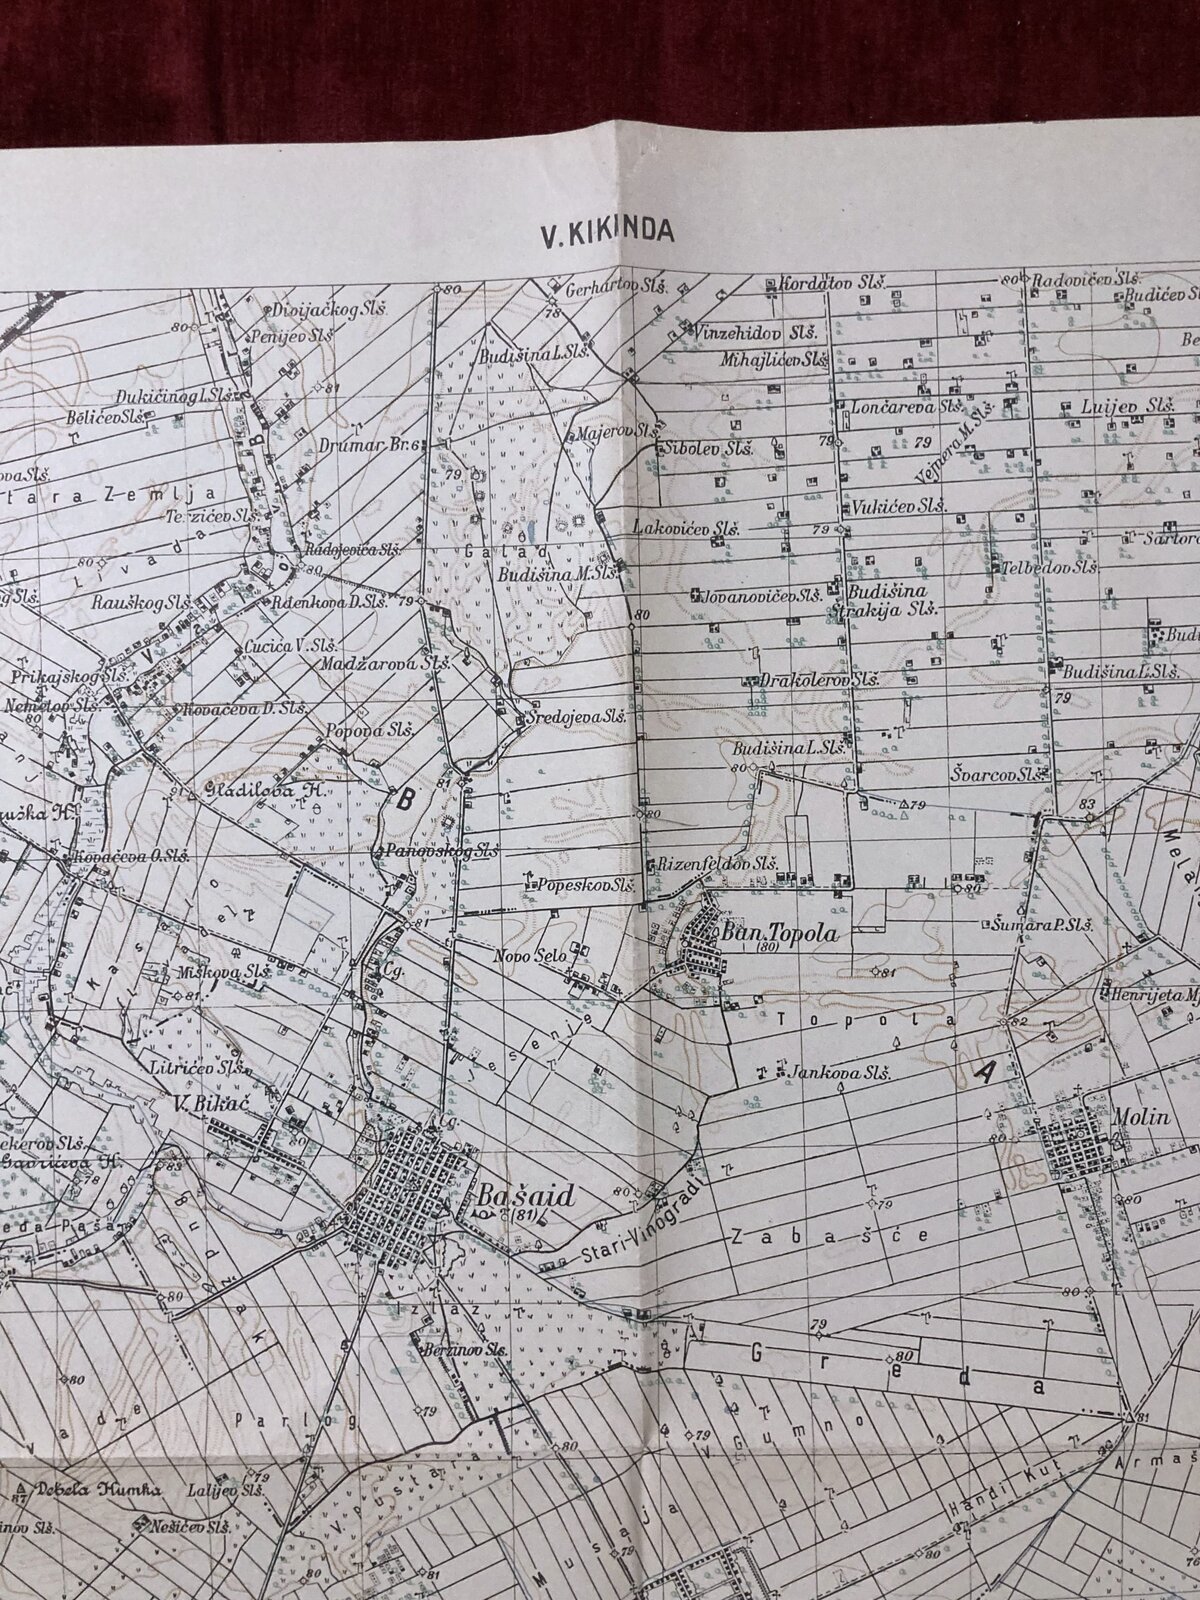 V. KIKINDA
80
Gerhartov Slš.
78
Kordatov Slš.
80
Radovićev Slš.
Divijačkog Slš.
80
Penijev Slš.
Vinzehidov Slš.
Mihajlićev Slš.
Budišina L. Slš.
81
Dukićinog I. Slš.
Bělićev Slš.
B
Lončareva Slš.
Luijev Slš.
Majerov Slš.
Drumar Br. 6
Sibolev Slš.
79
79
Vejnera M. Slš.
79
tara Zemlja
Vukićev Slš.
Lakovićev Slš.
79
Livada
Radojevića Slš.
80
80
Galad
Budišina M. Slš.
Telbedov Slš.
Raušk​og Slš.
Rdenkova D. Slš.
79
Jovanovićev Slš.
Budišina
Strakija Slš.
80
Cucića V. Slš.
Madžarova Slš.
V
Prikajskog Slš.
Drakolerov Slš.
Budišina L. Slš.
79
Nemetov Slš.
80
Kovačeva D. Slš.
Sredojeva Slš.
Popova Slš.
Budišina L. Slš.
80
Švarcov Slš.
81
Gladilova H.
B
79
83
80
Mela
Kovačeva O. Slš.
Panovskog Slš
Rizenfeldov Slš.
Popeskov Slš.
80
81
Ban. Topola
(80)
Šumara P. Slš.
Novo Selo
Cg.
Miškova Slš.
81
81
Henrijeta M
Jesenje
Topola
82
A
Litrićev Slš.
Jankova Slš.
V. Bikač
Cg.
80
Molin
80
ekerov Slš.
Gavrićeva H.
83
78
Bašaid
(81)
80
79
80
Stari-Vinogradi
Zabašće
80
80
Izlaz
79
Berzinov Slš.
Greda
80
80
79
Parlog
79
V Gumno
81
80
Pustara
Handi Kut
Armaš
Debela Humka
87
79
Lalijev Slš.
inov Slš.
Nešićev Slš.
79
80
81
80
Musaja
76